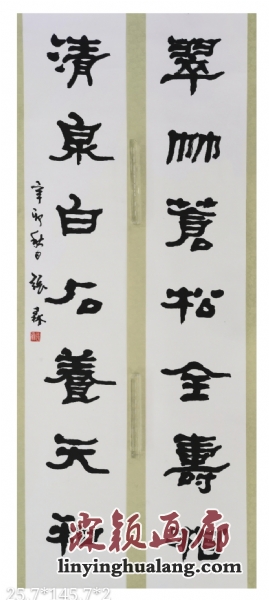 翠竹蒼松全壽
清泉白石養天
辛卯秋日 張森
霖颖画廊
linyinghualang.com
25.7*145.7*2